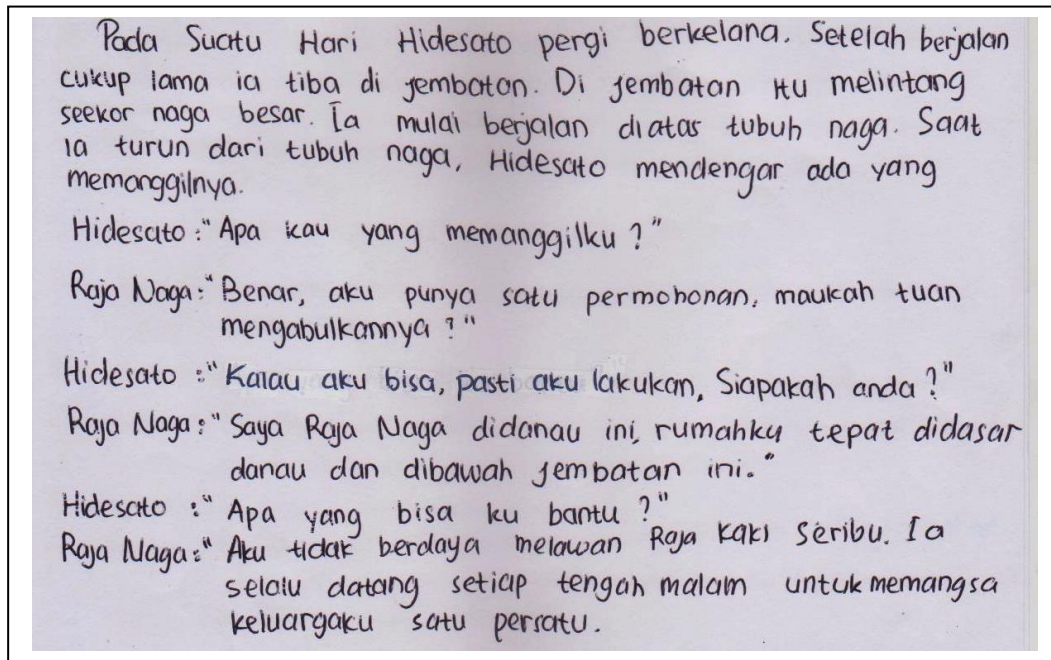 Pada Suatu Hari Hidesato pergi berkelana. Setelah berjalan
cukup lama ia tiba di jembatan. Di jembatan itu melintang
seekor naga besar. Ia mulai berjalan diatas tubuh naga. Saat
ia turun dari tubuh naga, Hidesato mendengar ada yang
memanggilnya.
Hidesato : "Apa kau yang memanggilku ?"
Raja Naga : "Benar, aku punya satu permohonan, maukah tuan
mengabulkannya ?"
Hidesato : "Kalau aku bisa, pasti aku lakukan, Siapakah anda ?"
Raja Naga : "Saya Raja Naga didanau ini, rumahku tepat didasar
danau dan dibawah jembatan ini."
Hidesato : "Apa yang bisa ku bantu ?"
Raja Naga : "Aku tidak berdaya melawan Raja Kaki Seribu. Ia
selalu datang setiap tengah malam untuk memangsa
keluargaku satu persatu.